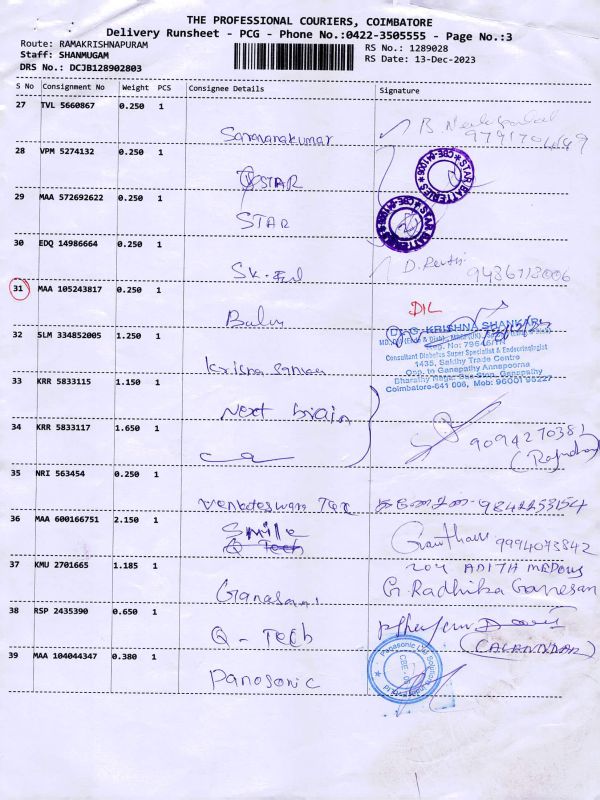 THE PROFESSIONAL COURIERS, COIMBATORE
Delivery Runsheet - PCG - Phone No.:0422-3505555 - Page No.:3
Route: RAMAKRISHNAPURAM
RS No.: 1289028
Staff: SHANMUGAM
RS Date: 13-Dec-2023
DRS No.: DCJB128902803
S No Consignment No Weight PCS Consignee Details Signature
27 TVL 5660867 0.250 1
Saravanakumar B
28 VPM 5274132 0.250 1
STAR
STAR BATTERIES
29 MAA 572692622 0.250 1
STAR
STAR BATTERIES
30 EDQ 14986664 0.250 1
D.
31 MAA 105243817 0.250 1
DIL
32 SLM 334852005 1.250 1
Dr. G. KRISHNA SHANKAR
Consultant Diabetes Super Specialist & Endocrinologist
1435, Sakthy Trade Centre
Opp. to Ganapathy Annapoorna
Coimbatore-641 006, Mob: 96001 95227
33 KRR 5833115 1.150 1
Next brain
34 KRR 5833117 1.650 1
9094270381
35 NRI 563454 0.250 1
Venkateswara Tex
36 MAA 600166751 2.150 1
Smile
Q Tech
9994073842
37 KMU 2701665 1.185 1
204 ADITH
G. Radhika Ganesan
38 RSP 2435390 0.650 1
Q - Tech
39 MAA 104044347 0.380 1
Panosonic